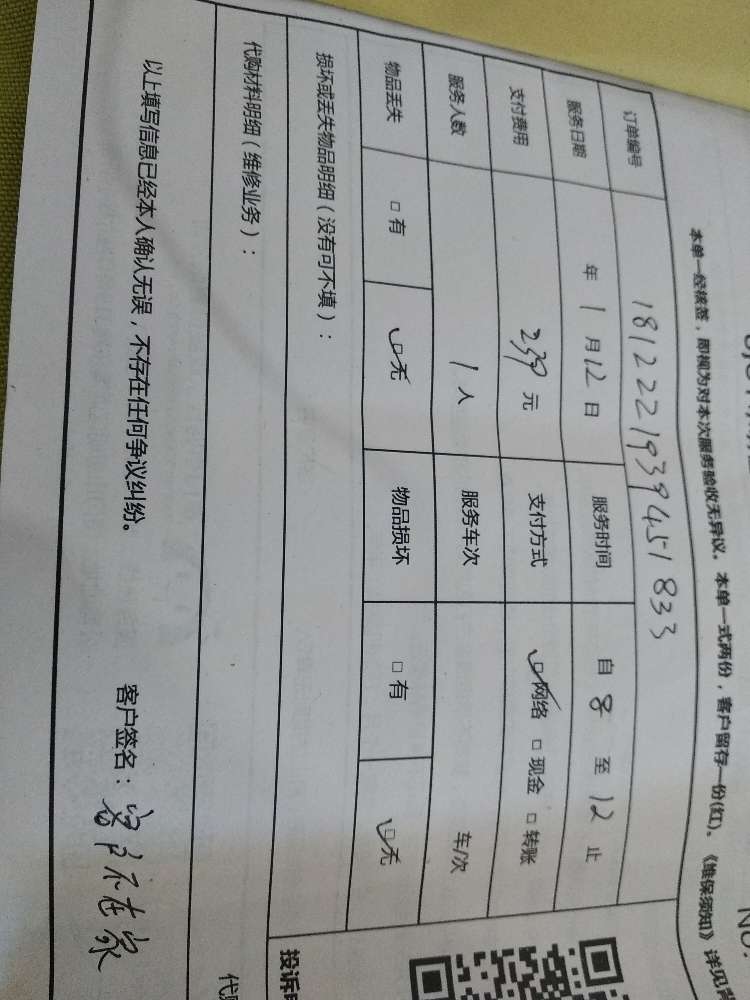 本单一经核签，即视为对本次服务验收无异议。本单一式两份，客户留存一份(红)。《维保须知》详见背
订单编号 181222193945183​3
服务日期 年 1 月 12 日 服务时间 自 8 至 12 止
支付费用 239 元 支付方式 ☑网络 □现金 □转账
服务人数 1 人 服务车次 车/次
物品丢失 □有 ☑无 物品损坏 □有 ☑无
损坏或丢失物品明细（没有可不填）：
投诉
代购材料明细（维修业务）：
以上填写信息已经本人确认无误，不存在任何争议纠纷。 客户签名：客户不在家